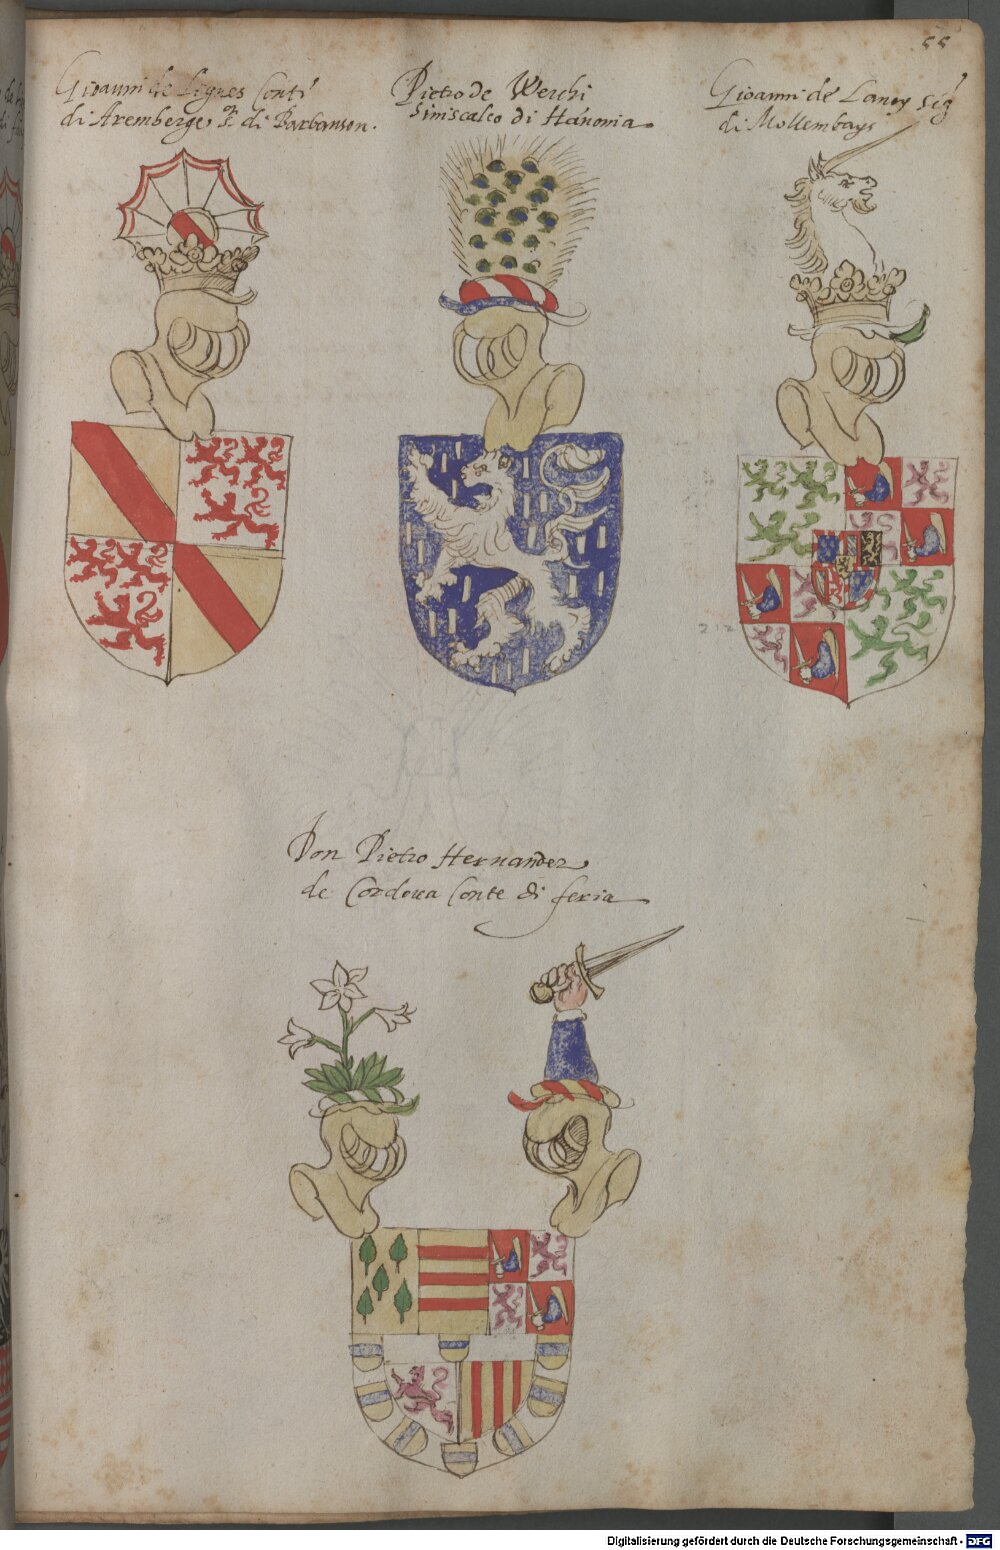 55
Giovanni de Lignes Conte
di Aremberge Sr. di Barbanson.
Pietro de Werchi
Siniscalco di Hanonia
Gioanni de Lanoy Sig
di Mollembays
212
Don Pietro Hernandez
de Cordova Conte di feria
Digitalisierung gefördert durch die Deutsche Forschungsgemeinschaft - DFG